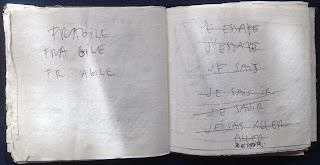 FRAGILE
FRA GILE
FR AGILE
J'E ESSAYE
J'ESSAYE
JE SAIS
JE SAIS IR
JE SAVIR
JE SAIS ALLER
ALLER